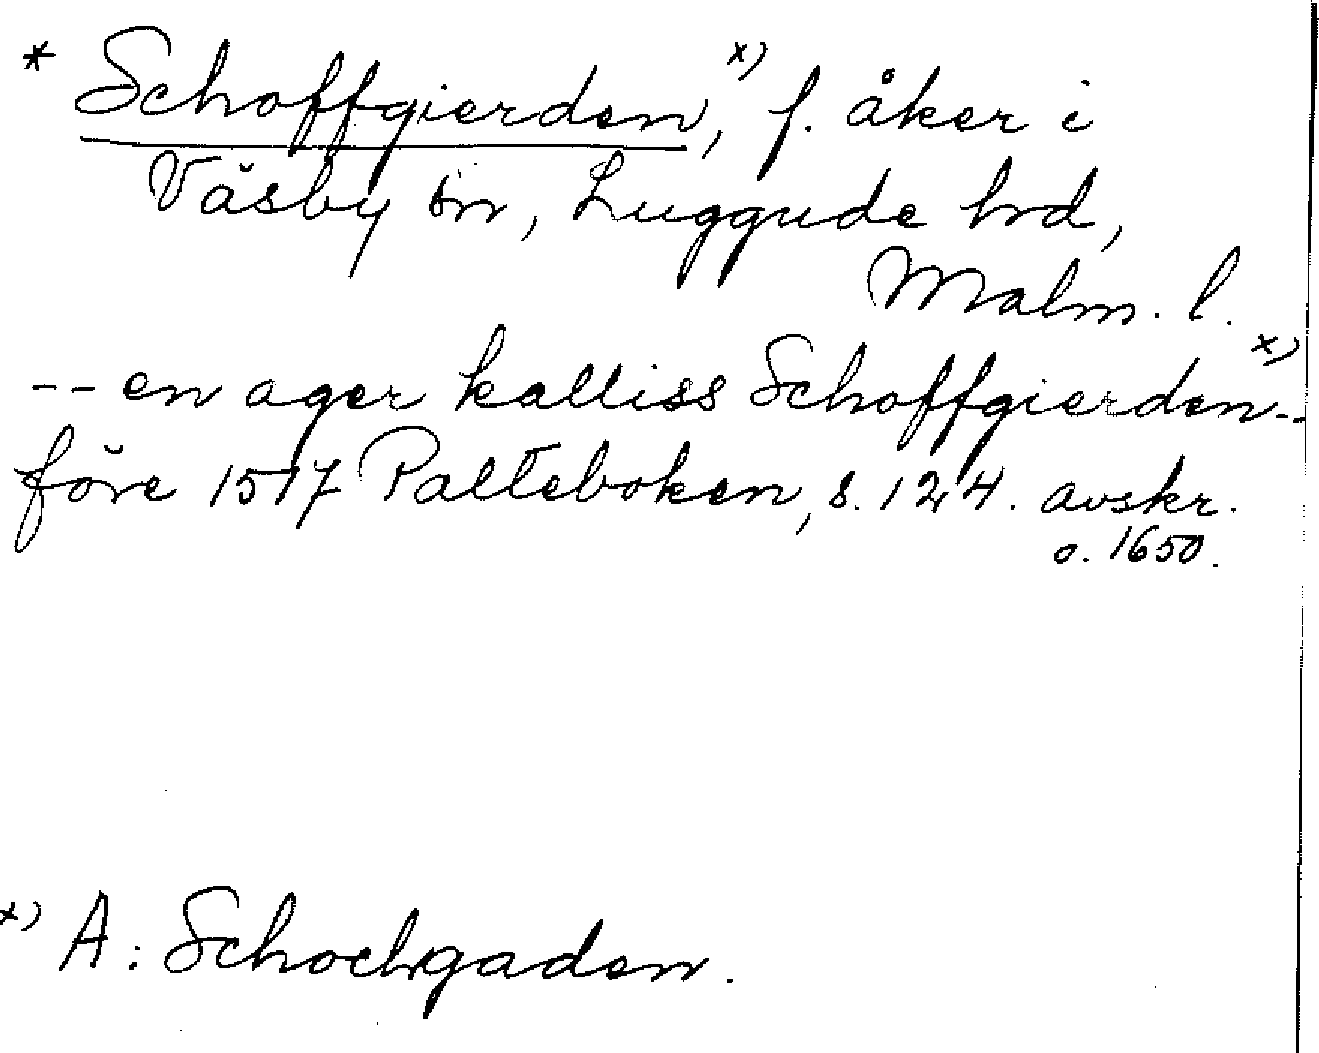 * Schoffgierden, x) f. åker i
Väsby sn, Luggude hd,
Malm. l.
-- en ager kalliss Schoffgierden x) --
före 1517 Palteboken, s. 124. avskr.
o. 1650.
x) A: Schochgaden.